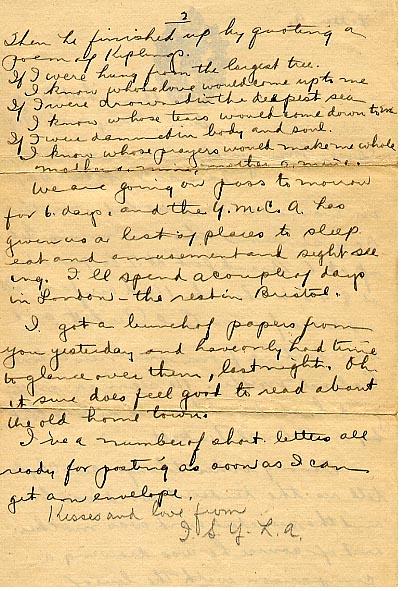 2
Then he finished up by quoting a
poem of Kiplings.
If I were hung from the largest tree.
I know whose love would come up to me
If I were drowned in the deepest sea
I know whose tears would come down to me
If I were damned in body and soul.
I know whose prayers would make me whole
mother o mine, mother o mine.
We are going on pass to morrow
for 6 days, and the Y.M.C.A. has
given us a list of places to sleep
eat and amusement and sight see
ing. I'll spend a couple of days
in London - the rest in Bristol.
I got a bunch of papers from
you yesterday and have only had time
to glance over them, last night. Oh
it sure does feel good to read about
the old home town.
I've a number of short letters all
ready for posting as soon as I can
get an envelope.
Kisses and love from